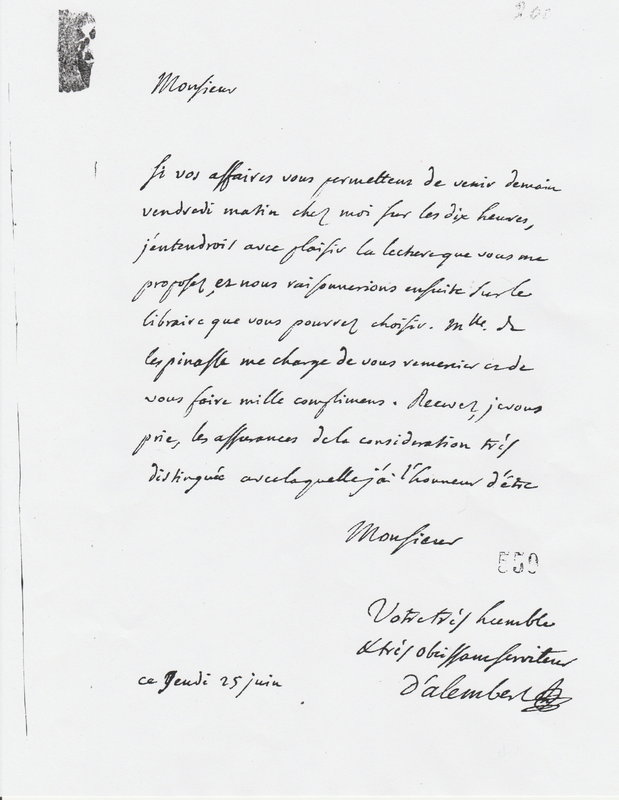 Monsieur
Si vos affaires vous permettent de venir demain
vendredi matin chez moi sur les dix heures,
j'entendrois avec plaisir la lecture que vous me
proposez, et nous raisonnerions ensuite sur le
libraire que vous pourrez choisir. Mlle. de
lespinasse me charge de vous remercier et de
vous faire mille complimens. Recevez, je vous
prie, les assurances de la consideration très
distinguée avec laquelle j'ai l'honneur d'être
Monsieur
559
Votre très humble
& très obeissant serviteur
ce Jeudi 25 juin
D'alembert